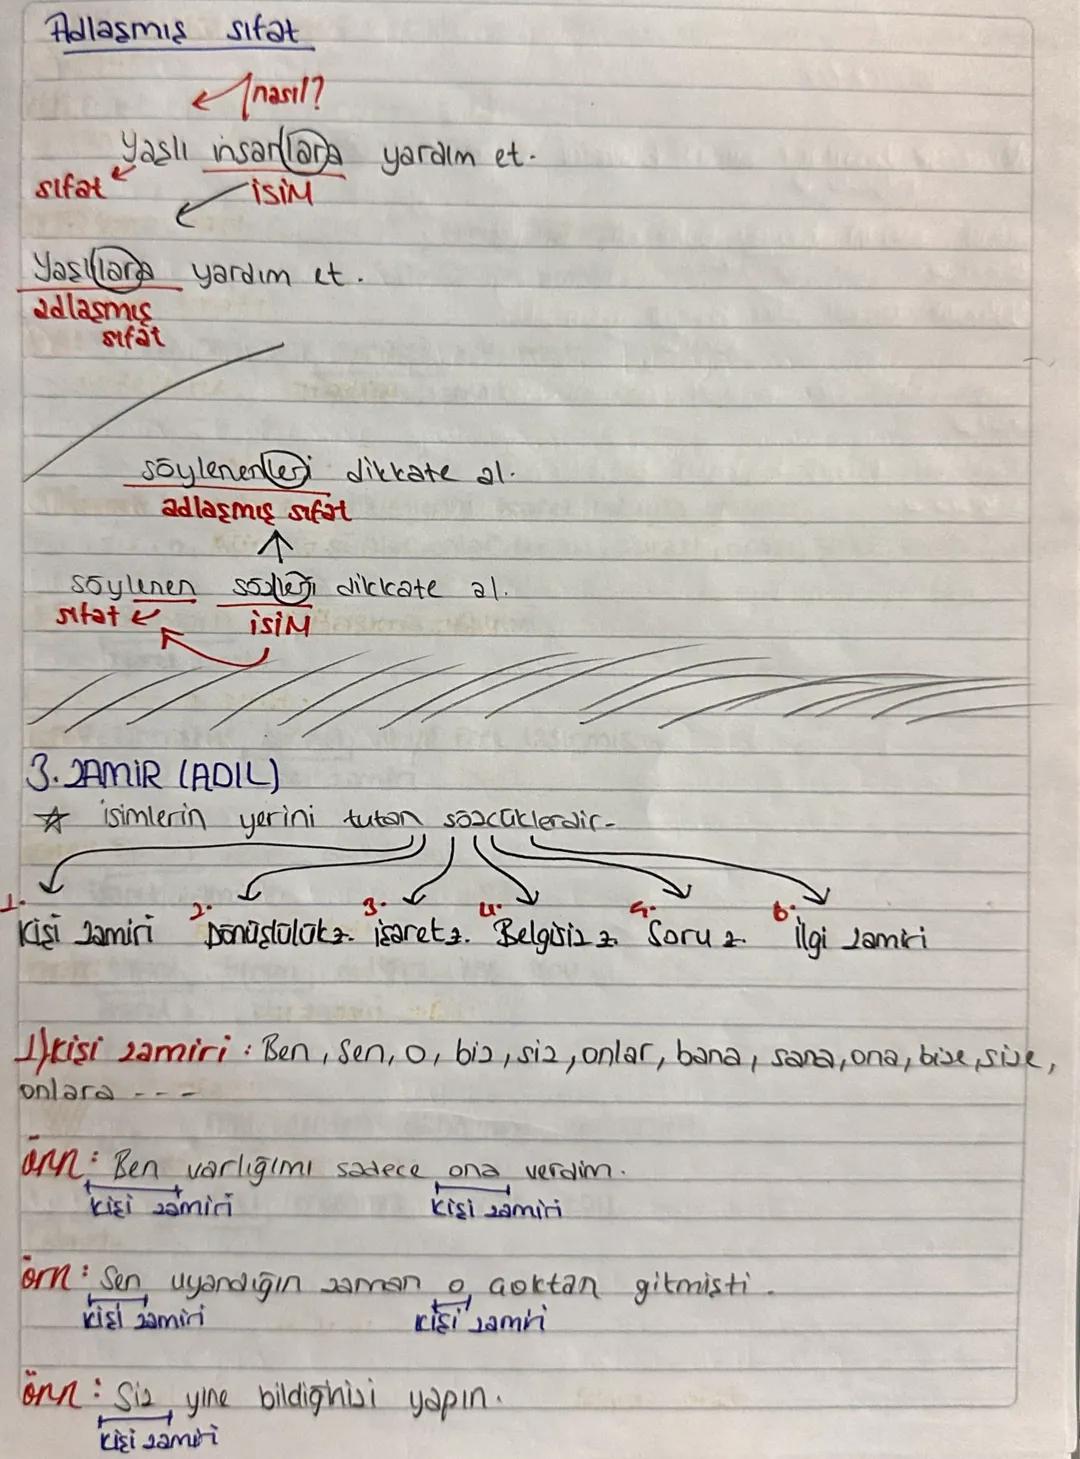 Adlaşmış sıfat
nasıl?
Yaşlı insanlara yardım et.
sıfat isim
Yaşlılara yardım et.
adlaşmış
sıfat
söylenenleri dikkate al.
adlaşmış sıfat
söylenen sözleri dikkate al.
sıfat isim
3. ZAMİR (ADIL)
☆ isimlerin yerini tutan sözcüklerdir.
1. 2. 3. 4. 5. 6.
Kişi zamiri Dönüşlülük z. işaret z. Belgisiz z. Soru z. İlgi zamiri
1) Kişi zamiri : Ben, Sen, O, biz, siz, onlar, bana, sana, ona, bize, size,
onlara ---
örn : Ben varlığımı sadece ona verdim.
kişi zamiri kişi zamiri
örn : Sen uyandığın zaman o çoktan gitmişti.
kişi zamiri kişi zamiri
örn : Siz yine bildiğinizi yapın.
kişi zamiri